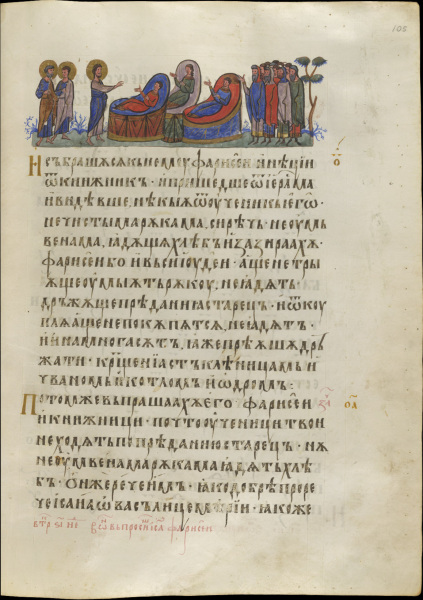 105
И събрашѧсѧ къ немоу фарисеи и нѣции
ѿ книжникъ · и пришедше ѿ іерⷭ҇лма
и видѣвше нѣкыѧ ѿ оученикъ его
нечистыма рѫкама, сирѣчь неоумъ
венама, ꙗдѧщѧ хлѣбъ зазираахѫ ·
фарисеи бо и въси юдеи · аще не тры
ѫще оумыѫтъ рѫкоу, не ꙗдѧтъ
дръжѧще прѣданиа старець · и ѿ коу
плѧ аще не покѫпѧтсѧ, не ꙗдѧтъ ·
и ина многа сѫтъ, ꙗже прѣѧшѧ дръ
жати · крьщениа стъклѣницамъ и
чваномъ и котломъ и ѡдромъ :
Потомже въпрашаахѫ его фарисеи
и книжници · почто оученици твои
не ходѧтъ по прѣданию старець · нѫ
неоумъвенама рѫкама ꙗдѧтъ хлѣ
бъ · онже рече имъ · ꙗко добрѣ прорѣ
че исаиа ѡ васъ лицемѣрии · ꙗкоже
фарисеи